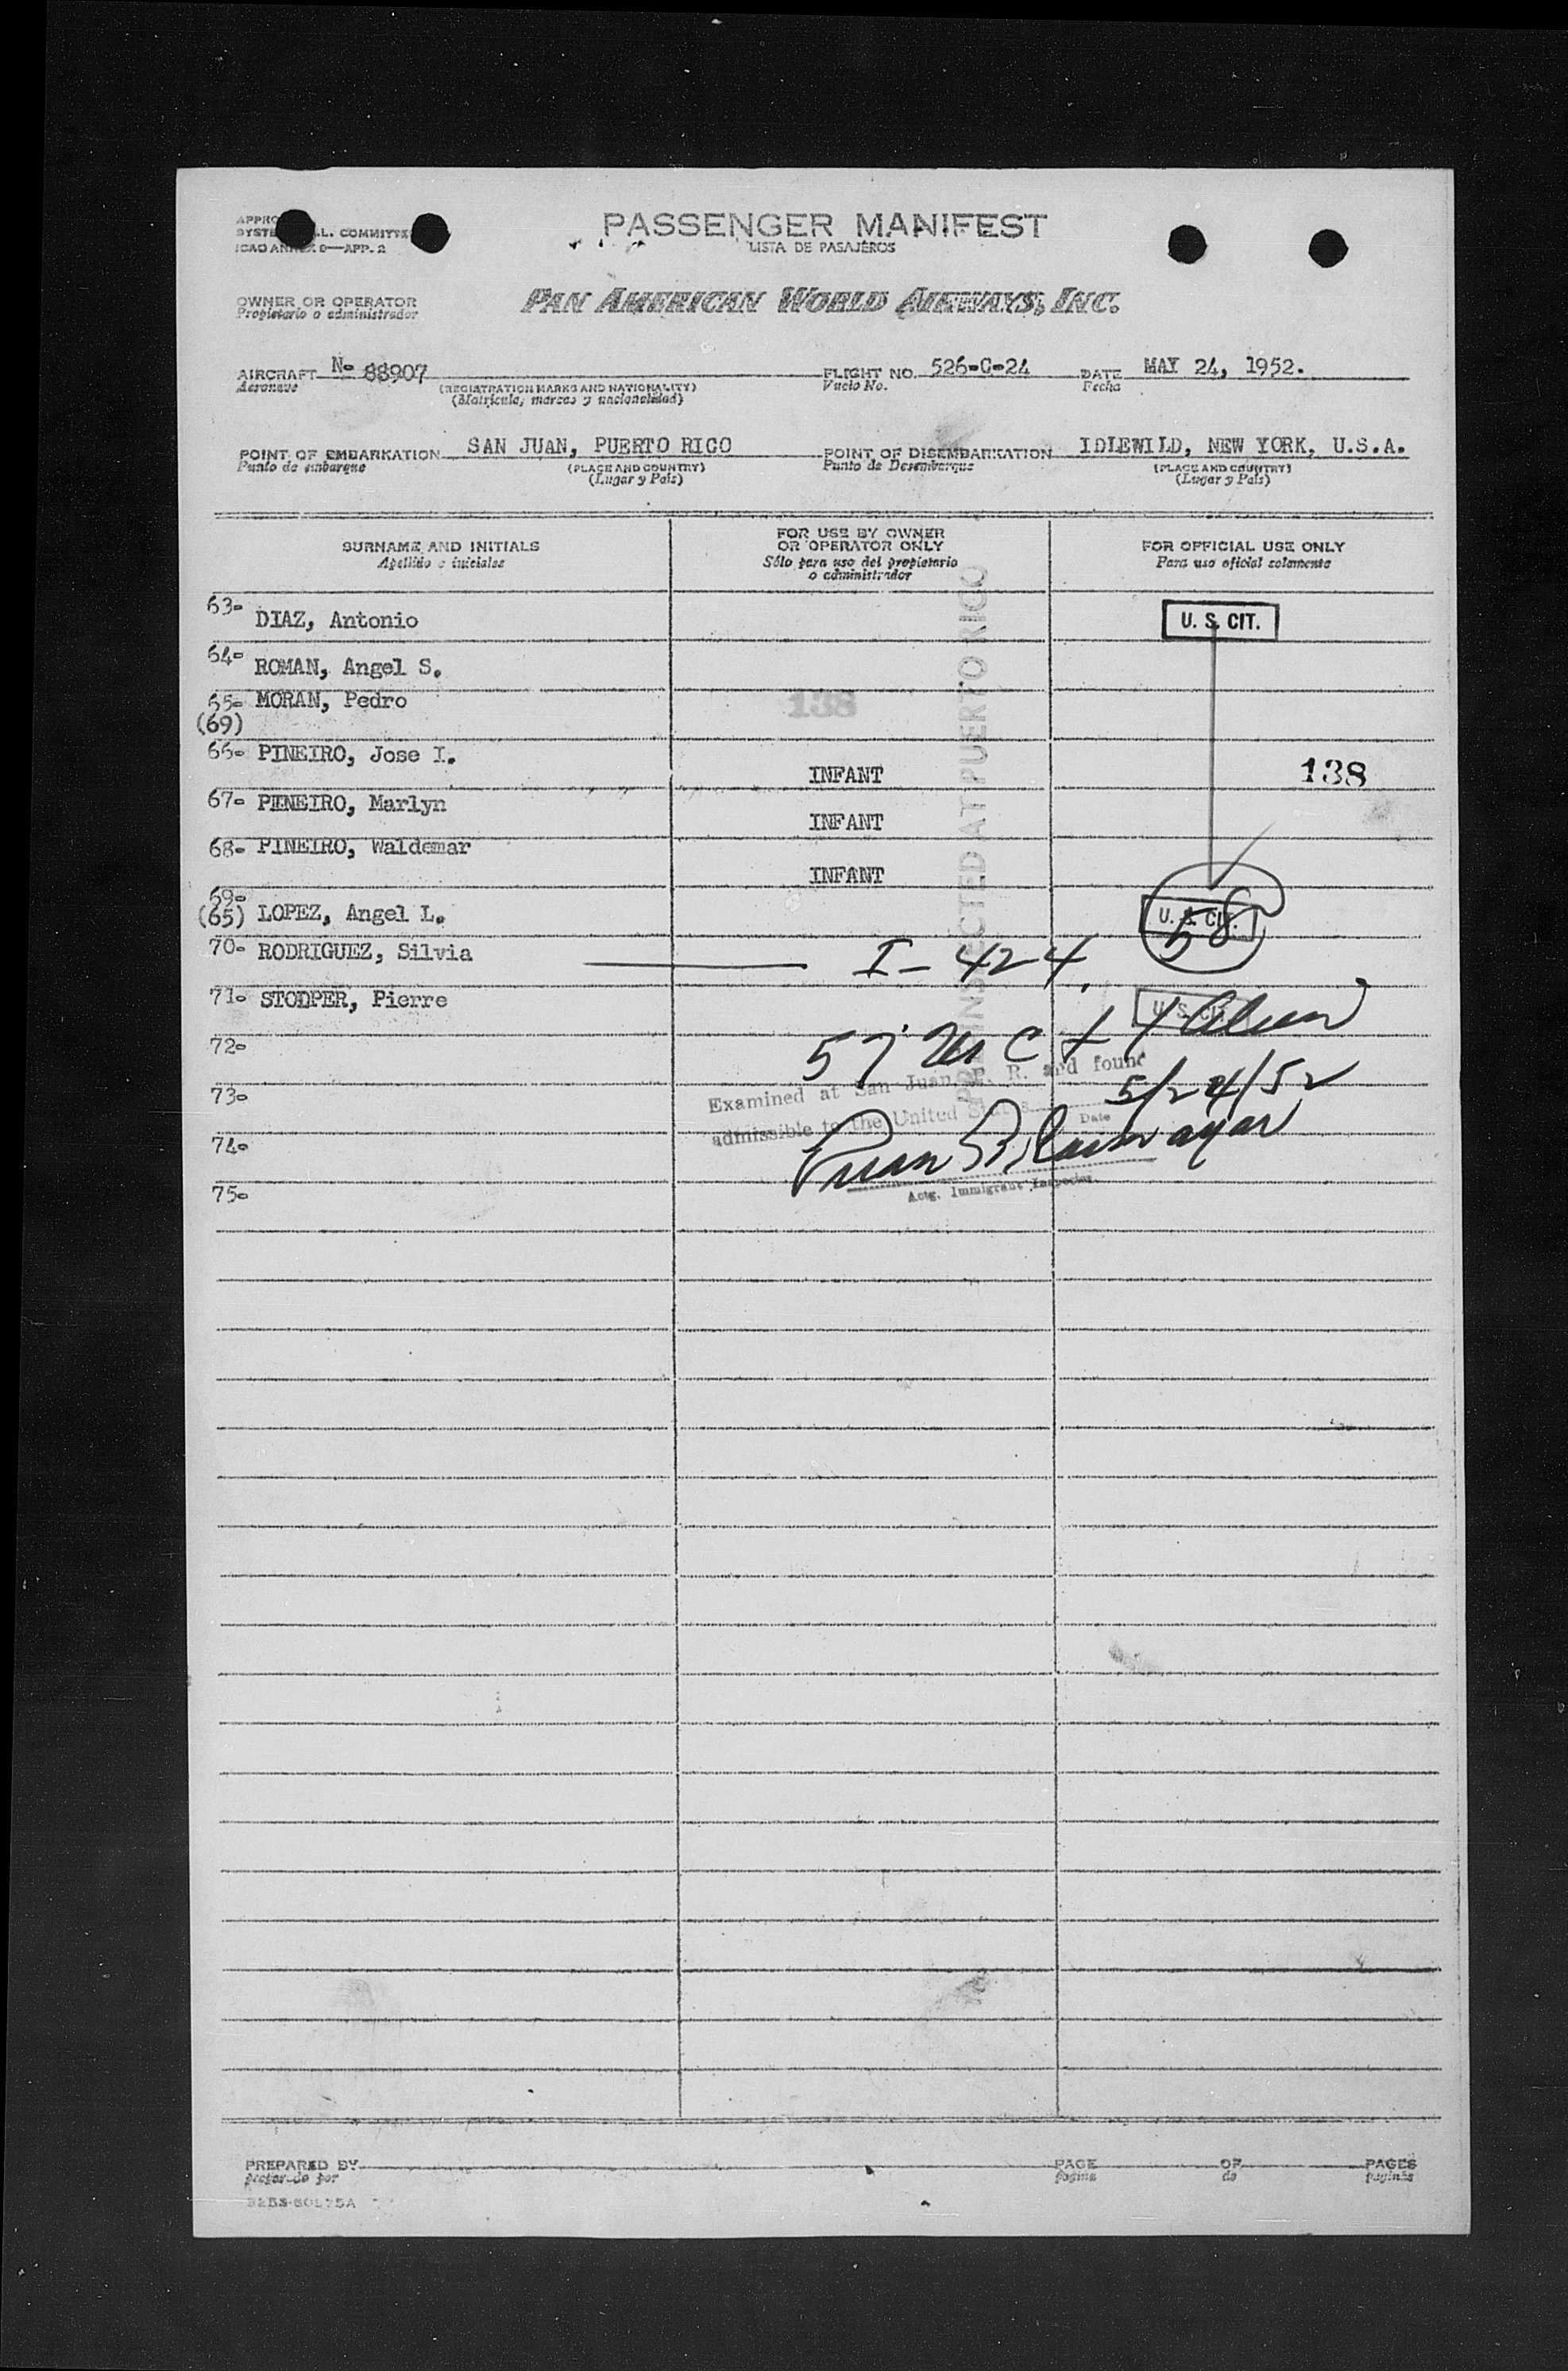 PASSENGER MANIFEST
LISTA DE PASAJEROS
ICAO ANNEX 9—APP. 2
OWNER OR OPERATOR
Propietario o administrador
PAN AMERICAN WORLD AIRWAYS, INC.
AIRCRAFT N- 88907
Aeronave
(REGISTRATION MARKS AND NATIONALITY)
(Matricula, marcas y nacionalidad)
FLIGHT NO. 526-C-24
Vuelo No.
DATE MAY 24, 1952.
Fecha
POINT OF EMBARKATION SAN JUAN, PUERTO RICO
Punto de embarque
(PLACE AND COUNTRY)
(Lugar y País)
POINT OF DISEMBARKATION IDLEWILD, NEW YORK, U.S.A.
Punto de Desembarque
(PLACE AND COUNTRY)
(Lugar y País)
SURNAME AND INITIALS
Apellido e iniciales
FOR USE BY OWNER
OR OPERATOR ONLY
Sólo para uso del propietario
o administrador
FOR OFFICIAL USE ONLY
Para uso oficial solamente
63- DIAZ, Antonio
U. S. CIT.
64- ROMAN, Angel S.
65- MORAN, Pedro
(69)
138
66- PINEIRO, Jose I.
INFANT
138
67- PINEIRO, Marlyn
INFANT
68- PINEIRO, Waldemar
INFANT
69-
(65) LOPEZ, Angel L.
U. S. CIT.
58
70- RODRIGUEZ, Silvia
I-424
71- STODPER, Pierre
U. S. CIT.
72-
57 us c + 1 Alien
73-
Examined at San Juan, P. R. and found
admissible to the United States
5/24/52
Date
74-
75-
Actg. Immigrant Inspector
INSPECTED AT PUERTO RICO
PREPARED BY
preparado por
PAGE OF PAGES
página de páginas